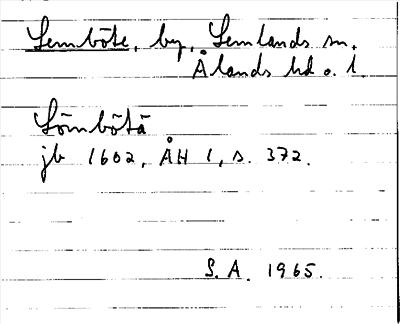 Lembôte, by, Lemlands sn,
Ålands hd o. l.
Lömbötä
jb 1602, ÅH 1, s. 372.
S. A. 1965.